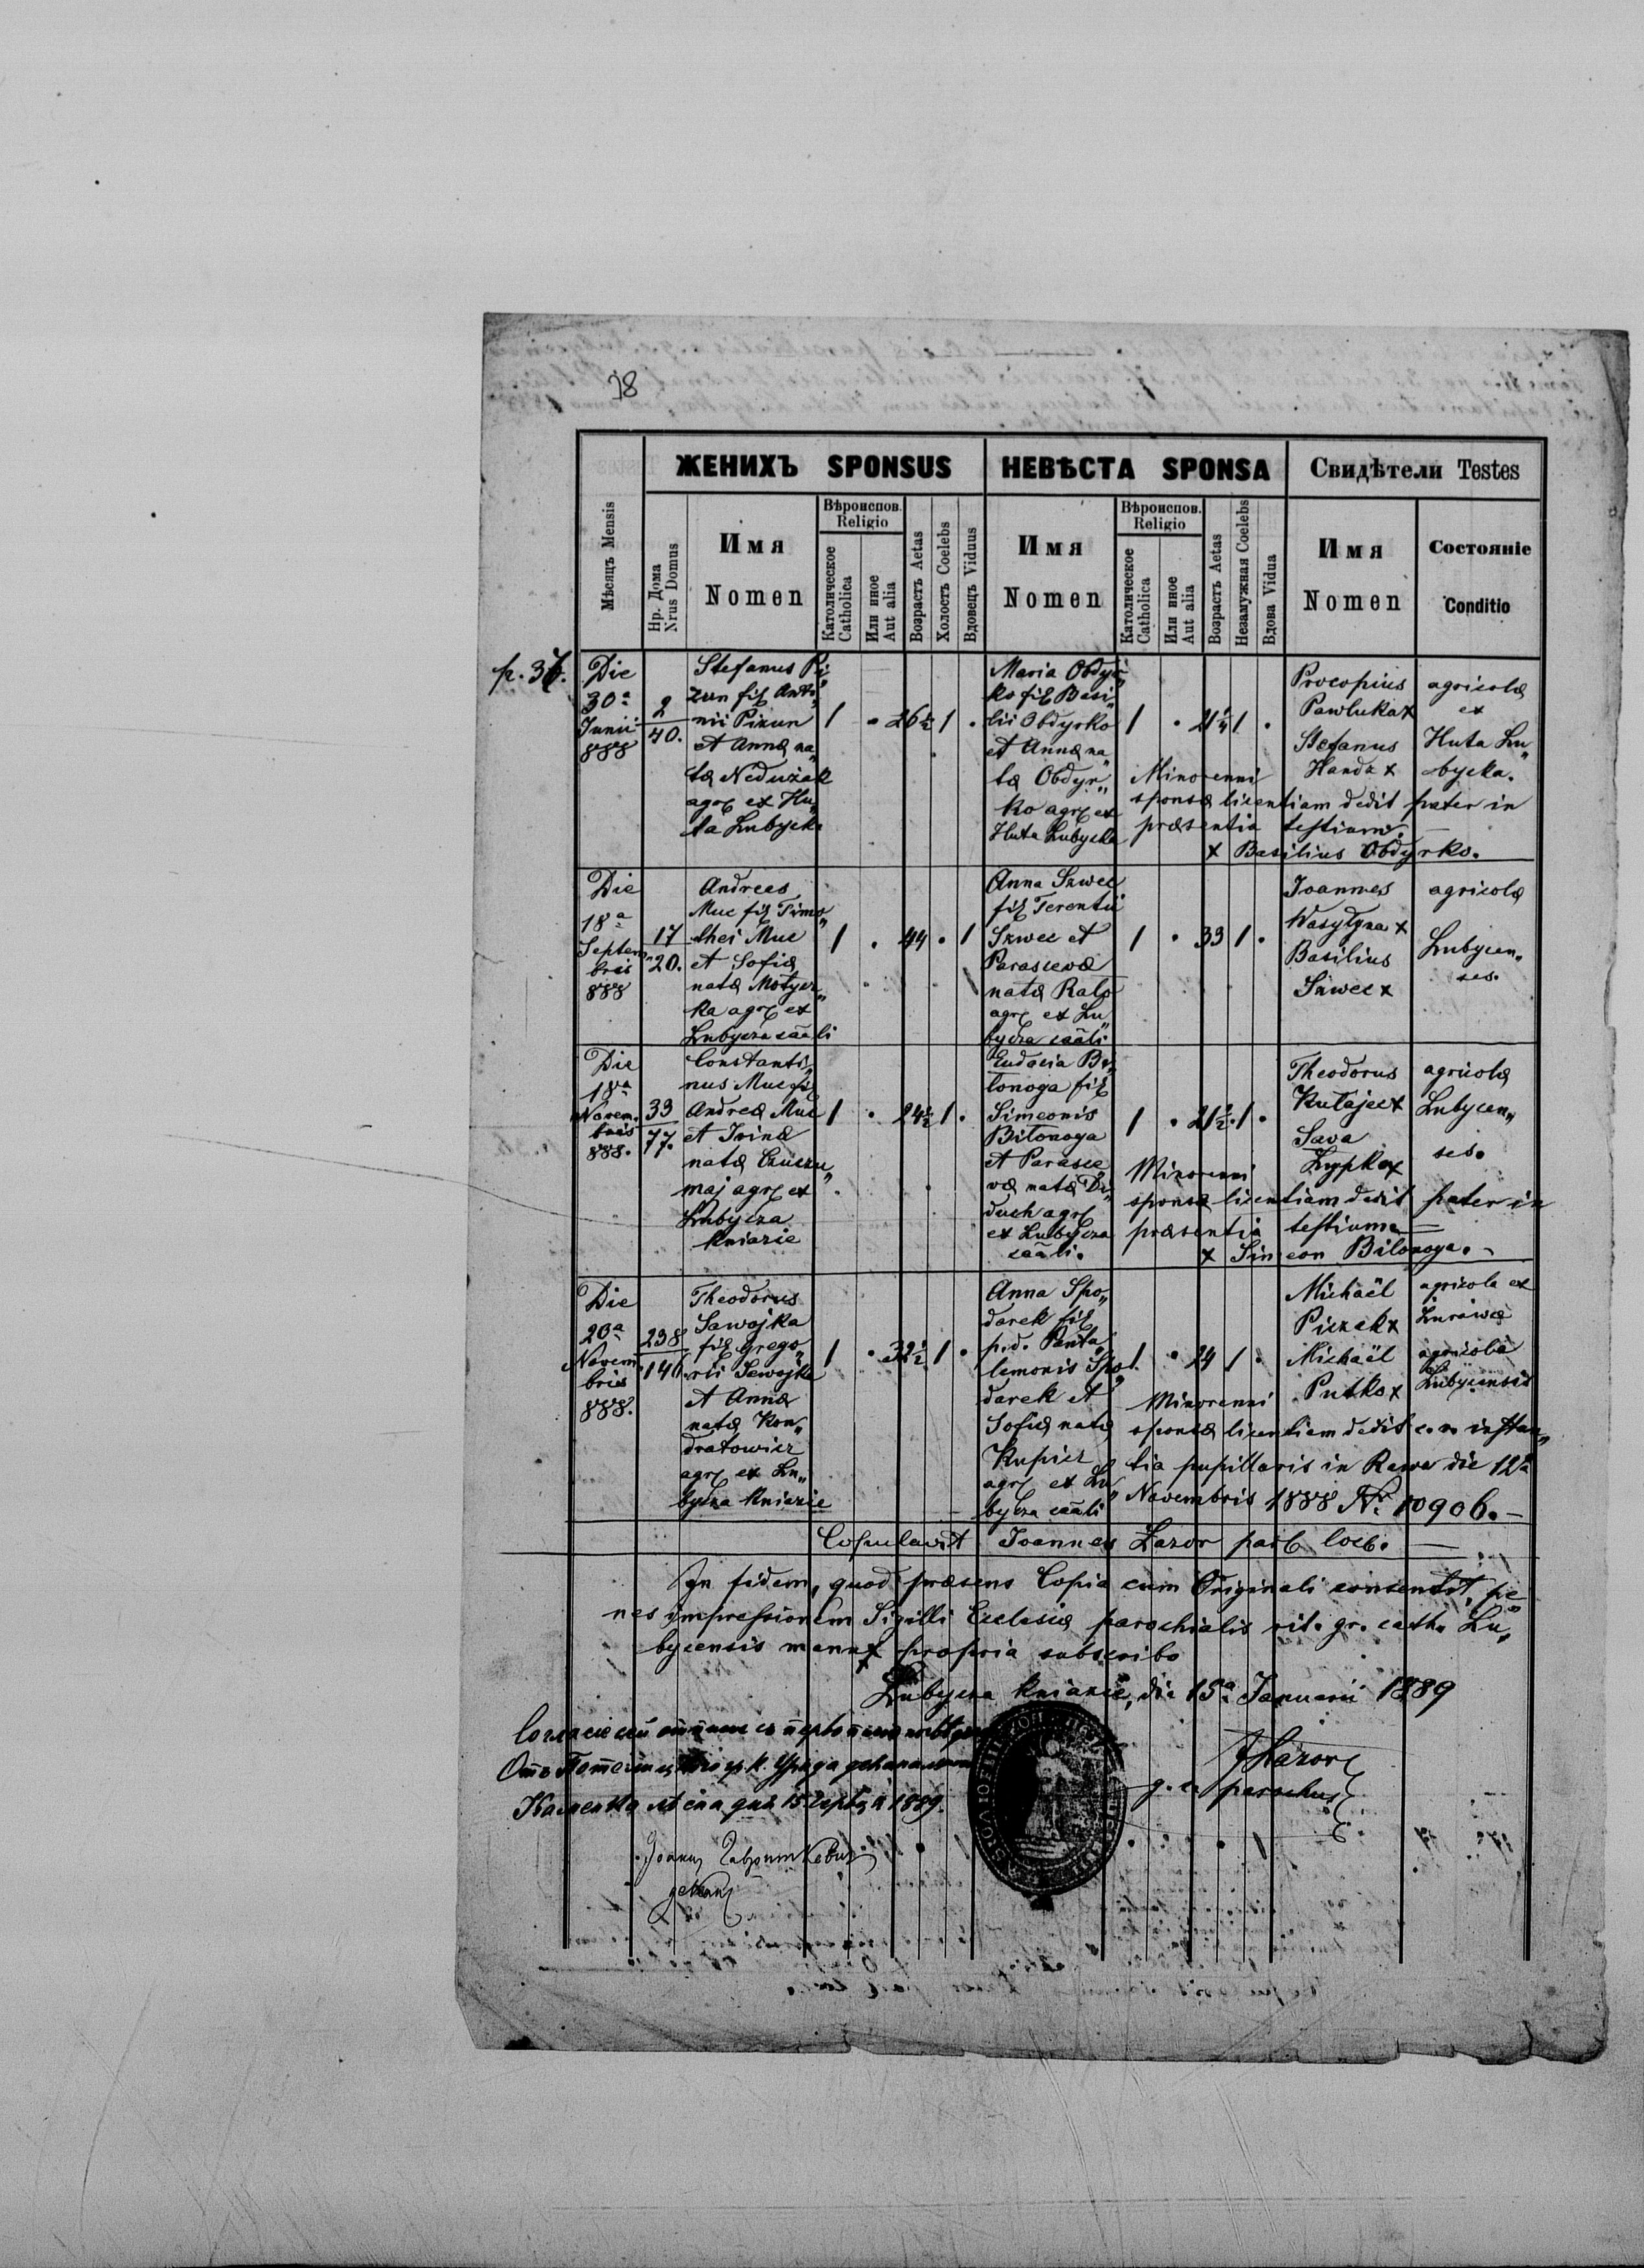 78
ЖЕНИХЪ SPONSUS
НЕВѢСТА SPONSA
Свидѣтели Testes
Мѣсяцъ Mensis
Нр. Дома
Nrus Domus
Имя
Nomen
Вѣроиспов.
Religio
Католическое
Catholica
Или иное
Aut alia
Возрастъ Aetas
Холостъ Coelebs
Вдовецъ Viduus
Имя
Nomen
Вѣроиспов.
Religio
Католическое
Catholica
Или иное
Aut alia
Возрастъ Aetas
Незамужная Coelebs
Вдова Vidua
Имя
Nomen
Состояніе
Conditio
Die
30a
Junii
888
2
40.
Stefanus Pi„
zun fil Anto„
nii Pizun
et Annæ na„
tæ Nedużak
agr ex Hu„
ta Lubycka
1 . 26½ 1 .
Maria Obdyr„
ko fil Basi„
lii Obdyrko
et Annæ na„
tæ Obdyr„
ko agr ex
Huta Lubycka
1 . 21¼ 1 .
Procopius
Pawluka x
Stefanus
Handa x
agricolæ
ex
Huta Lu„
bycka.
Minorenni
sponsæ licentiam dedit pater in
præsentia testium.
x Basilius Obdyrko.
Die
18a
Septem„
bris
888
17
20.
Andreas
Muc fil Timo„
thei Muc
et Sofiæ
natæ Motycz„
ka agr ex
Lubycza caäli
1 . 44 . 1
Anna Szwec
fil Terentii
Szwec et
Parascevæ
natæ Ralo
agr ex Lu„
bycza caäli
1 . 33 1 .
Joannes
Wasylyna x
Basilius
Szwec x
agricolæ
Lubycen„
ses.
Die
18a
Novem„
bris
888.
33
77.
Constanti„
nus Muc fil
Andreæ Muc
et Irinæ
natæ Czuczu„
maj agr ex
Lubycza
Kniazie
1 . 24½ 1 .
Eudocia Bi„
lonoga fil
Simeonis
Bilonoga
et Parasce„
væ natæ Di„
duch agr
ex Lubycza
caäli.
1 . 21½ . 1 .
Theodorus
Kutajec x
Sava
Lypko x
agricolæ
Lubycen„
ses.
Minorenni
sponsæ licentiam dedit pater in
præsentia testium
x Simeon Bilonoga.
Die
20a
Novem„
bris
888.
238
146.
Theodorus
Sawojka
fil Grego„
rii Sewojka
et Annæ
natæ Kon„
dratowicz
agr ex Lu„
bycza Kniazie
1 . 32½ 1 .
Anna Spo„
darek fil
p.d. Panta„
lemonis Spo„
darek et
Sofiæ natæ
Kupicz
agr ex Lu„
bycza caäli
1 . 24 1 .
Michaël
Piczak x
Michaël
Putko x
agricola ex
Zurawce
agricola
Lubycensis
Minorenni
sponsæ licentiam dedit c. r. instan„
tia pupillaris in Rawa die 12a
Novembris 1888 Nr. 10906.
Copulavit Joannes Lazor par loci.
In fidem, quod præsens Copia cum Originali consentit, pe„
nes impressionem Sigilli Ecclesiæ parochialis rit. gr. cath. Lu„
bycensis manu propria subscribo
Lubycza Kniazie, die 15a Januarii 1889
JLazor
g. c. parochus
1889.